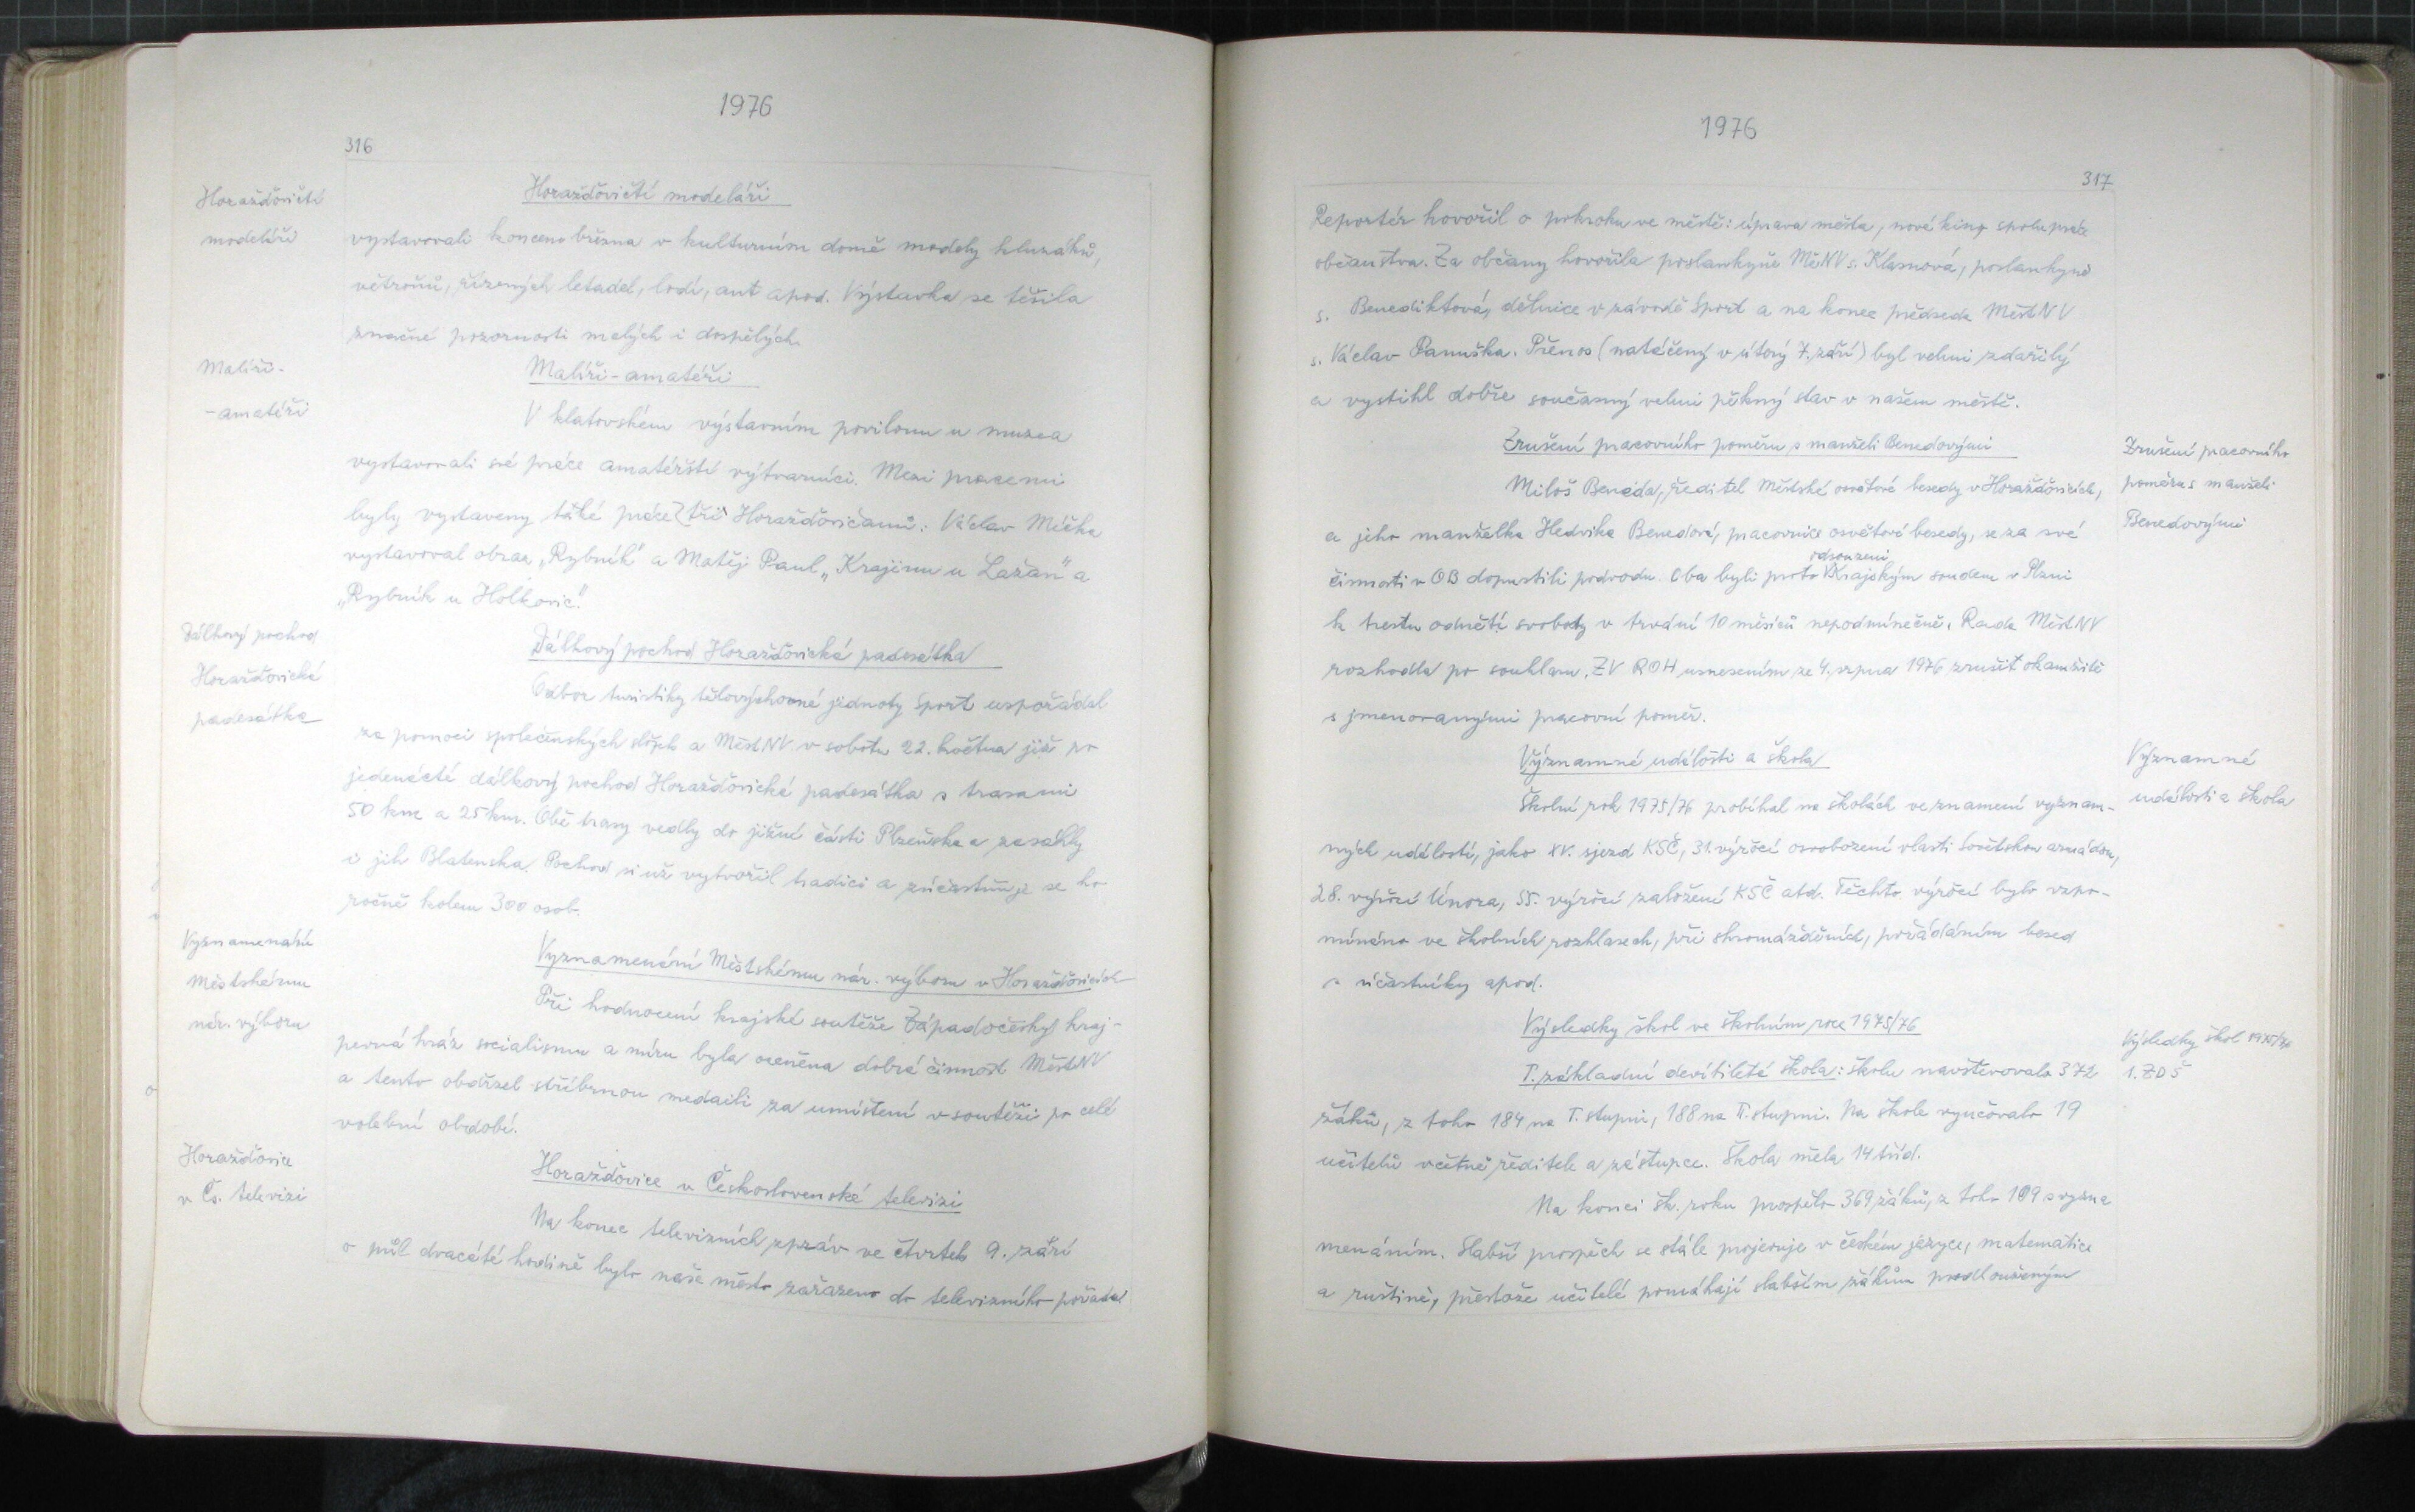 1976
316
Horažďovičtí
modeláři
Horažďovičtí modeláři
vystavovali koncem března v kulturním domě modely kluzáků,
větroňů, řízených letadel, lodí, aut apod. Výstavka se těšila
značné pozornosti malých i dospělých.
Malíři-
-amatéři
Malíři-amatéři
V klatovském výstavním pavilonu u muzea
vystavovali své práce amatérští výtvarníci. Mezi pracemi
byly vystaveny také práce tří Horažďovičanů: Václav Míčka
vystavoval obraz „Rybník“ a Matěj Paul „Krajinu u Lažan“ a
„Rybník u Holkovic“.
Dálkový pochod
Horažďovická
padesátka
Dálkový pochod Horažďovická padesátka
Odbor turistiky tělovýchovné jednoty Sport uspořádal
za pomoci společenských složek a MěstNV v sobotu 22. května již po
jedenácté dálkový pochod Horažďovická padesátka s trasami
50 km a 25 km. Obě trasy vedly do jižní části Plzeňska a zasáhly
i jih Blatenska. Pochod si už vytvořil tradici a zúčastňuje se ho
ročně kolem 300 osob.
Vyznamenání
Městskému
nár. výboru
Vyznamenání Městskému nár. výboru v Horažďovicích
Při hodnocení krajské soutěže Západočeský kraj -
pevná hráz socialismu a míru byla oceněna dobrá činnost MěstNV
a tento obdržel stříbrnou medaili za umístění v soutěži po celé
volební období.
Horažďovice
v Čs. televizi
Horažďovice v Československé televizi
Na konec televizních zpráv ve čtvrtek 9. září
o půl dvacáté hodině bylo naše město zařazeno do televizního pořadu.
1976
317
Reportér hovořil o pokroku ve městě: úprava města, nové kino, spolupráce
občanstva. Za občany hovořila poslankyně MěNV s. Klasnová, poslankyně
s. Benediktová, dělnice v závodě Šport a na konec předseda MěstNV
s. Václav Panuška. Přenos (natáčený v úterý 7. září) byl velmi zdařilý
a vystihl dobře současný velmi pěkný stav v našem městě.
Zrušení pracovního poměru s manželi Benedovými
Zrušení pracovního
poměru s manželi
Benedovými
Miloš Beneda, ředitel Městské osvětové besedy v Horažďovicích,
a jeho manželka Hedvika Benedová, pracovnice osvětové besedy, se za své
činnosti v OB dopustili podvodu. Oba byli proto odsouzeni Krajským soudem v Plzni
k trestu odnětí svobody v trvání 10 měsíců nepodmínečně. Rada MěstNV
rozhodla po souhlasu ZV ROH usnesením ze 4. srpna 1976 zrušit okamžitě
s jmenovanými pracovní poměr.
Významné události a škola
Významné
události a škola
Školní rok 1975/76 probíhal na školách ve znamení význam-
ných událostí, jako XV. sjezd KSČ, 31. výročí osvobození vlasti Sovětskou armádou,
28. výročí Února, 55. výročí založení KSČ atd. Těchto výročí bylo vzpo-
mínáno ve školních rozhlasech, při shromážděních, pořádáním besed
s účastníky apod.
Výsledky škol ve školním roce 1975/76
Výsledky škol 1975/76
1. ZDŠ
I. základní devítiletá škola: školu navštěvovalo 372
žáků, z toho 184 na I. stupni, 188 na II. stupni. Na škole vyučovalo 19
učitelů včetně ředitele a zástupce. Škola měla 14 tříd.
Na konci šk. roku prospělo 369 žáků, z toho 109 s vyzna
menáním. Slabší prospěch se stále projevuje v českém jazyce, matematice
a ruštině, přestože učitelé pomáhají slabším žákům prodlouženým